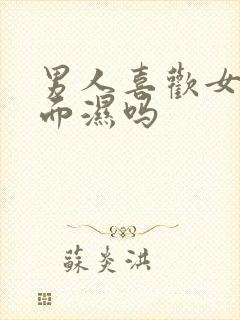 男人喜歡女
而濕吗
蘇炎洪